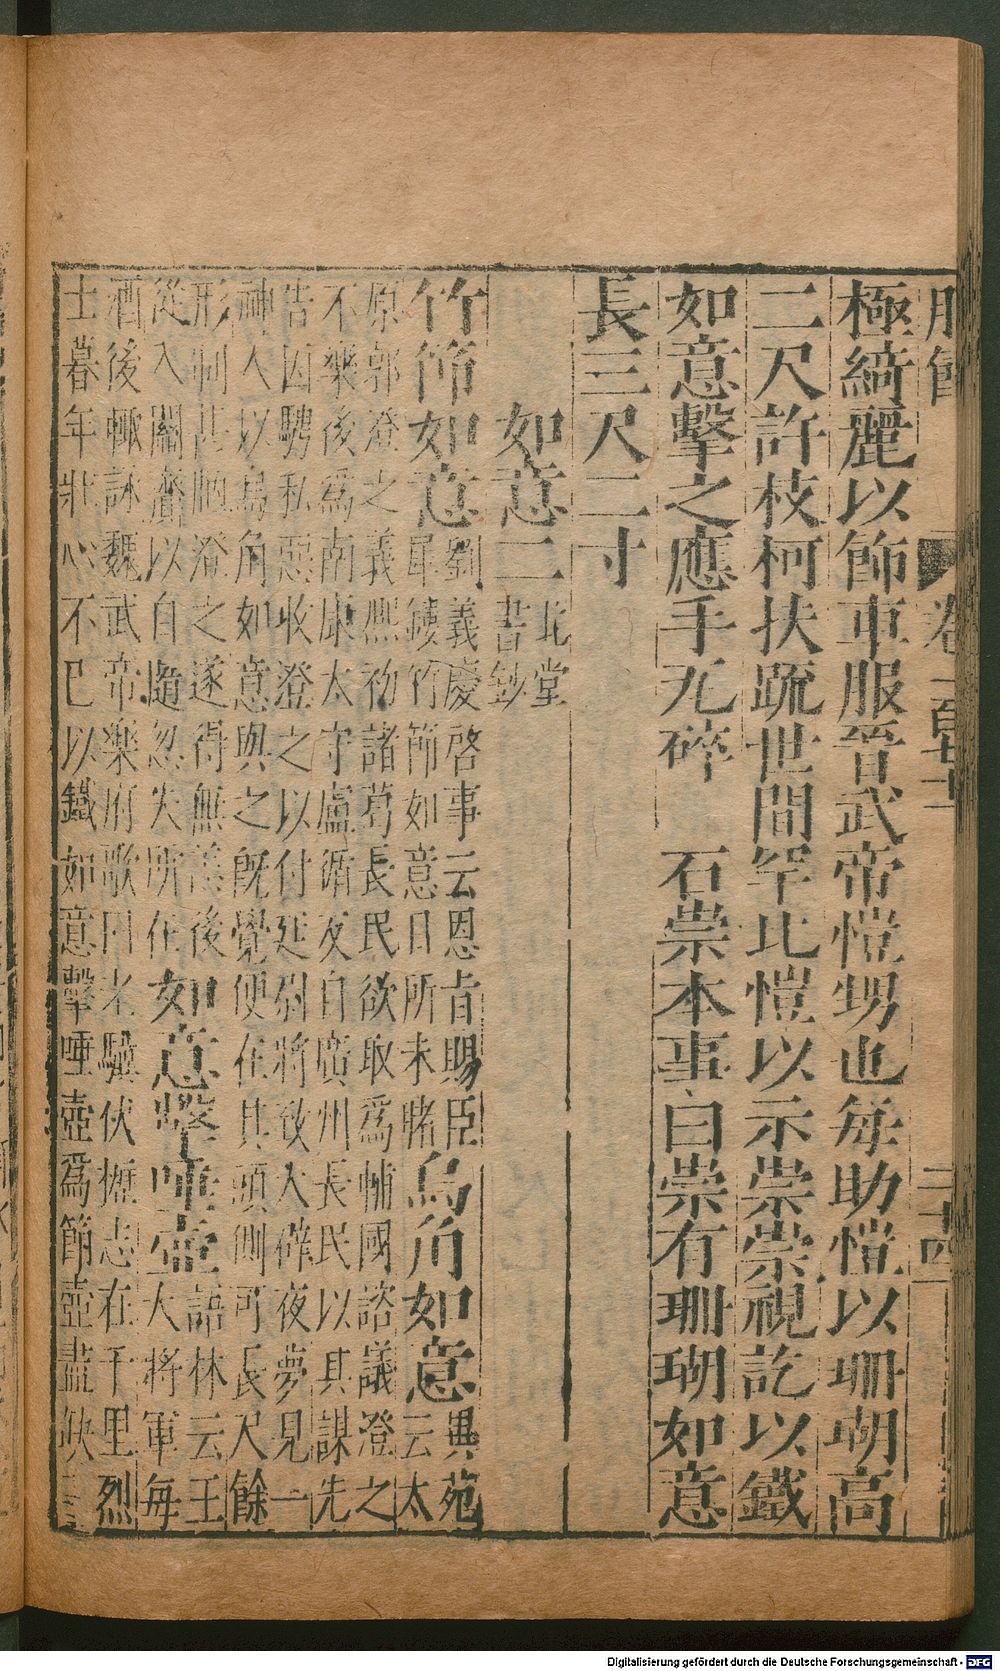 服飾 卷一百七十二 二十四
極綺麗以飾車服晉武帝愷甥也每助愷以珊瑚高
二尺許枝柯扶疏世間罕比愷以示崇崇視訖以鐵
如意擊之應手丸碎 石崇本事曰崇有珊瑚如意
長三尺二寸
如意二 北堂
書鈔
竹節如意 劉義慶啓事云恩旨賜臣
犀鏤竹節如意目所未睹 烏角如意 異苑
云太
原郭澄之義熙初諸葛長民欲取爲輔國諮議澄之
不樂後爲南康太守盧循反自廣州長民以其謀先
告因騁私惡收澄之以付延尉將致大辟夜夢見一
神人以烏角如意與之旣覺便在其頭側可長尺餘
形制甚陋澄之遂得無恙後
從入關齎以自隨忽失所在 如意擊唾壺 語林云王
大將軍每
酒後輙詠魏武帝樂府歌曰老驥伏櫪志在千里烈
士暮年壯心不已以鐵如意擊唾壺爲節壺盡缺
Digitalisierung gefördert durch die Deutsche Forschungsgemeinschaft - DFG